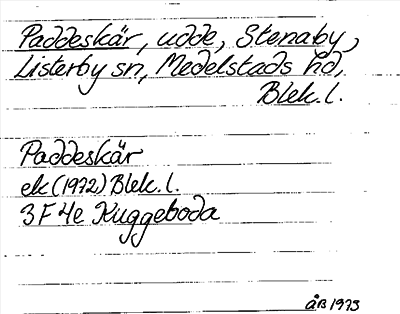 Paddeskär, udde, Stenaby,
Listerby sn, Medelstads hd,
Blek. l.
Paddeskär
ek (1972) Blek. l.
3F 4e Kuggeboda
ÅB 1973